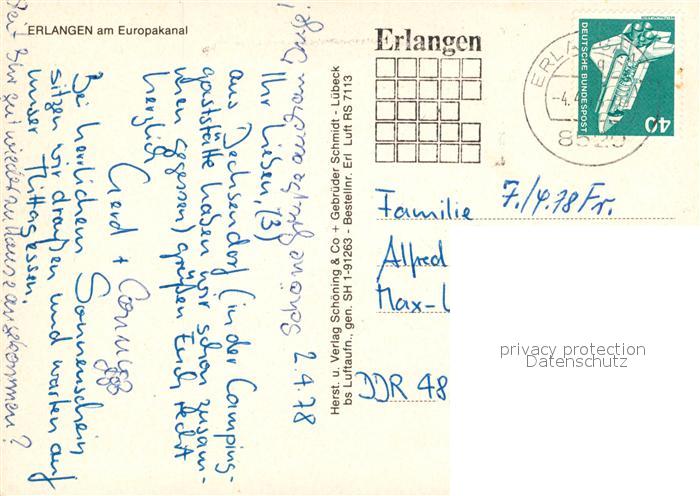 ERLANGEN am Europakanal
Erlangen
ERLA
-4.4
8520
DEUTSCHE BUNDESPOST
40
2.4.78
Ihr Lieben, (3)
aus Dechsendorf (in der Camping-
gaststätte haben wir schon zusam-
men gegessen) grüßen Euch recht
herzlich
Gerd + Conny
Bei herrlichem Sonnenschein
sitzen wir draußen und warten auf
unser Mittagessen.
Seid Ihr gut wieder zu Hause angekommen?
Schöne Grüße auch an
Herst. u. Verlag Schöning & Co + Gebrüder Schmidt - Lübeck
bs Luftaufn., gen. SH 1-91263 - Bestellnr. Erl Luft RS 7113
7./4.78 Fr.
Familie
Alfred
Max-
DDR 48
privacy protection
Datenschutz